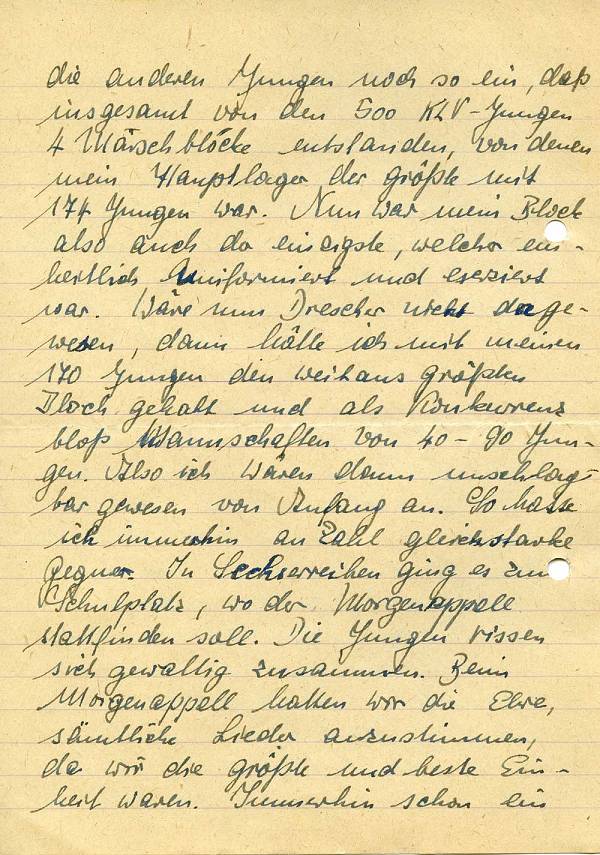 die anderen Jungen noch so ein, daß
insgesamt von den 500 KLV-Jungen
4 Marschblöcke entstanden, von denen
mein Hauptlager der größte mit
174 Jungen war. Nun war mein Block
also auch da einzigste, welcher ein-
heitlich Uniformiert und exerziert
war. Wäre nun Drescher nicht dage-
wesen, dann hätte ich mit meinen
170 Jungen den weitaus größten
Block gehabt und als Konkurrenz
bloß Mannschaften von 40-90 Jun-
gen. Also ich wären dann unschlag-
bar gewesen von Anfang an. So hatte
ich immerhin an Zahl gleichstarke
Gegner. In Sechserreihen ging es zum
Schulplatz, wo der Morgenappell
stattfinden soll. Die Jungen rissen
sich gewaltig zusammen. Beim
Morgenappell hatten wir die Ehre,
sämtliche Lieder anzustimmen,
da wir die größte und beste Ein-
heit waren. Immerhin schon ein